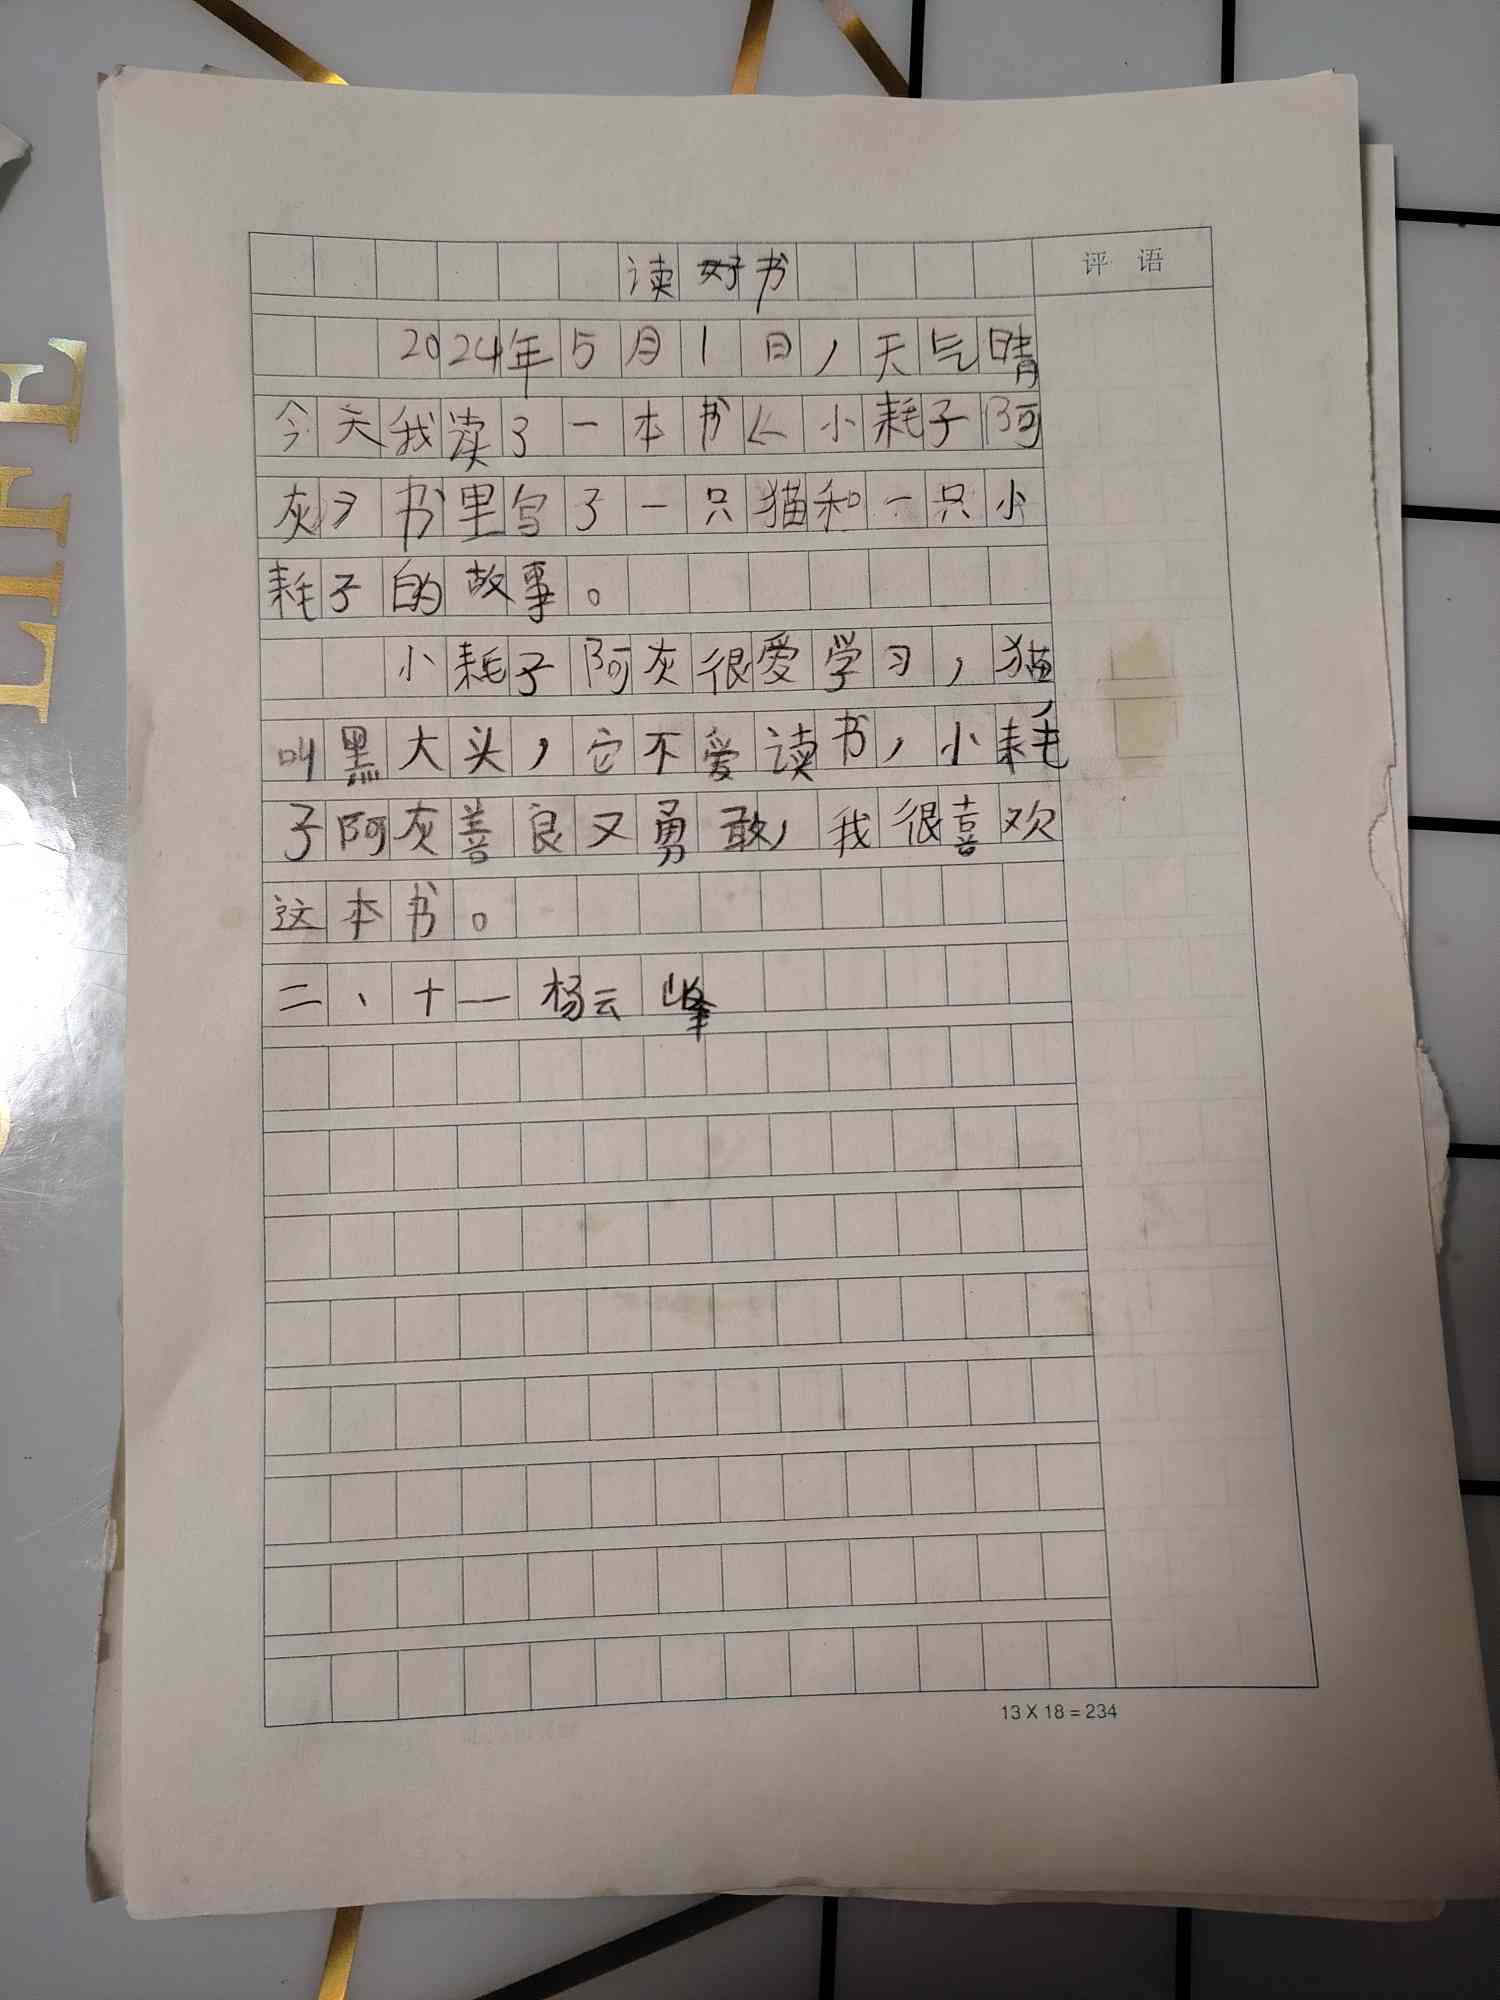 读好书
评 语
2024年5月1日,天气晴
今天我读了一本书《小耗子阿
灰》书里写了一只猫和一只小
耗子的故事。
小耗子阿灰很爱学习,猫
叫黑大头,它不爱读书,小耗
子阿灰善良又勇敢,我很喜欢
这本书。
二、十一 杨云峰
13 X 18 = 234
LIFE